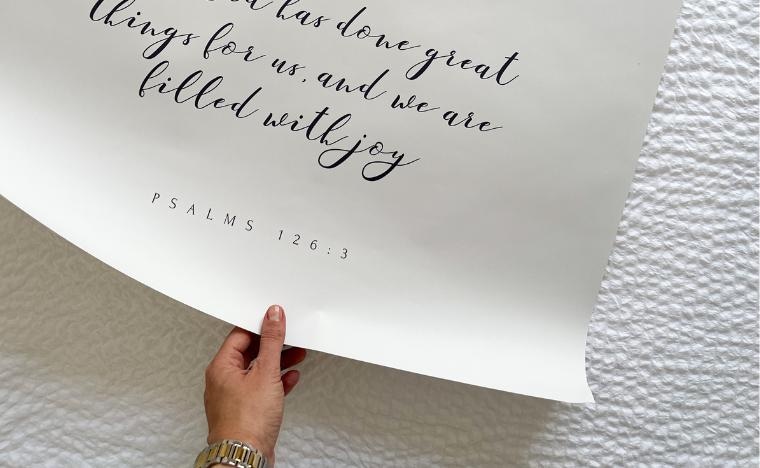 has done great
things for us, and we are
filled with joy
PSALMS 126:3